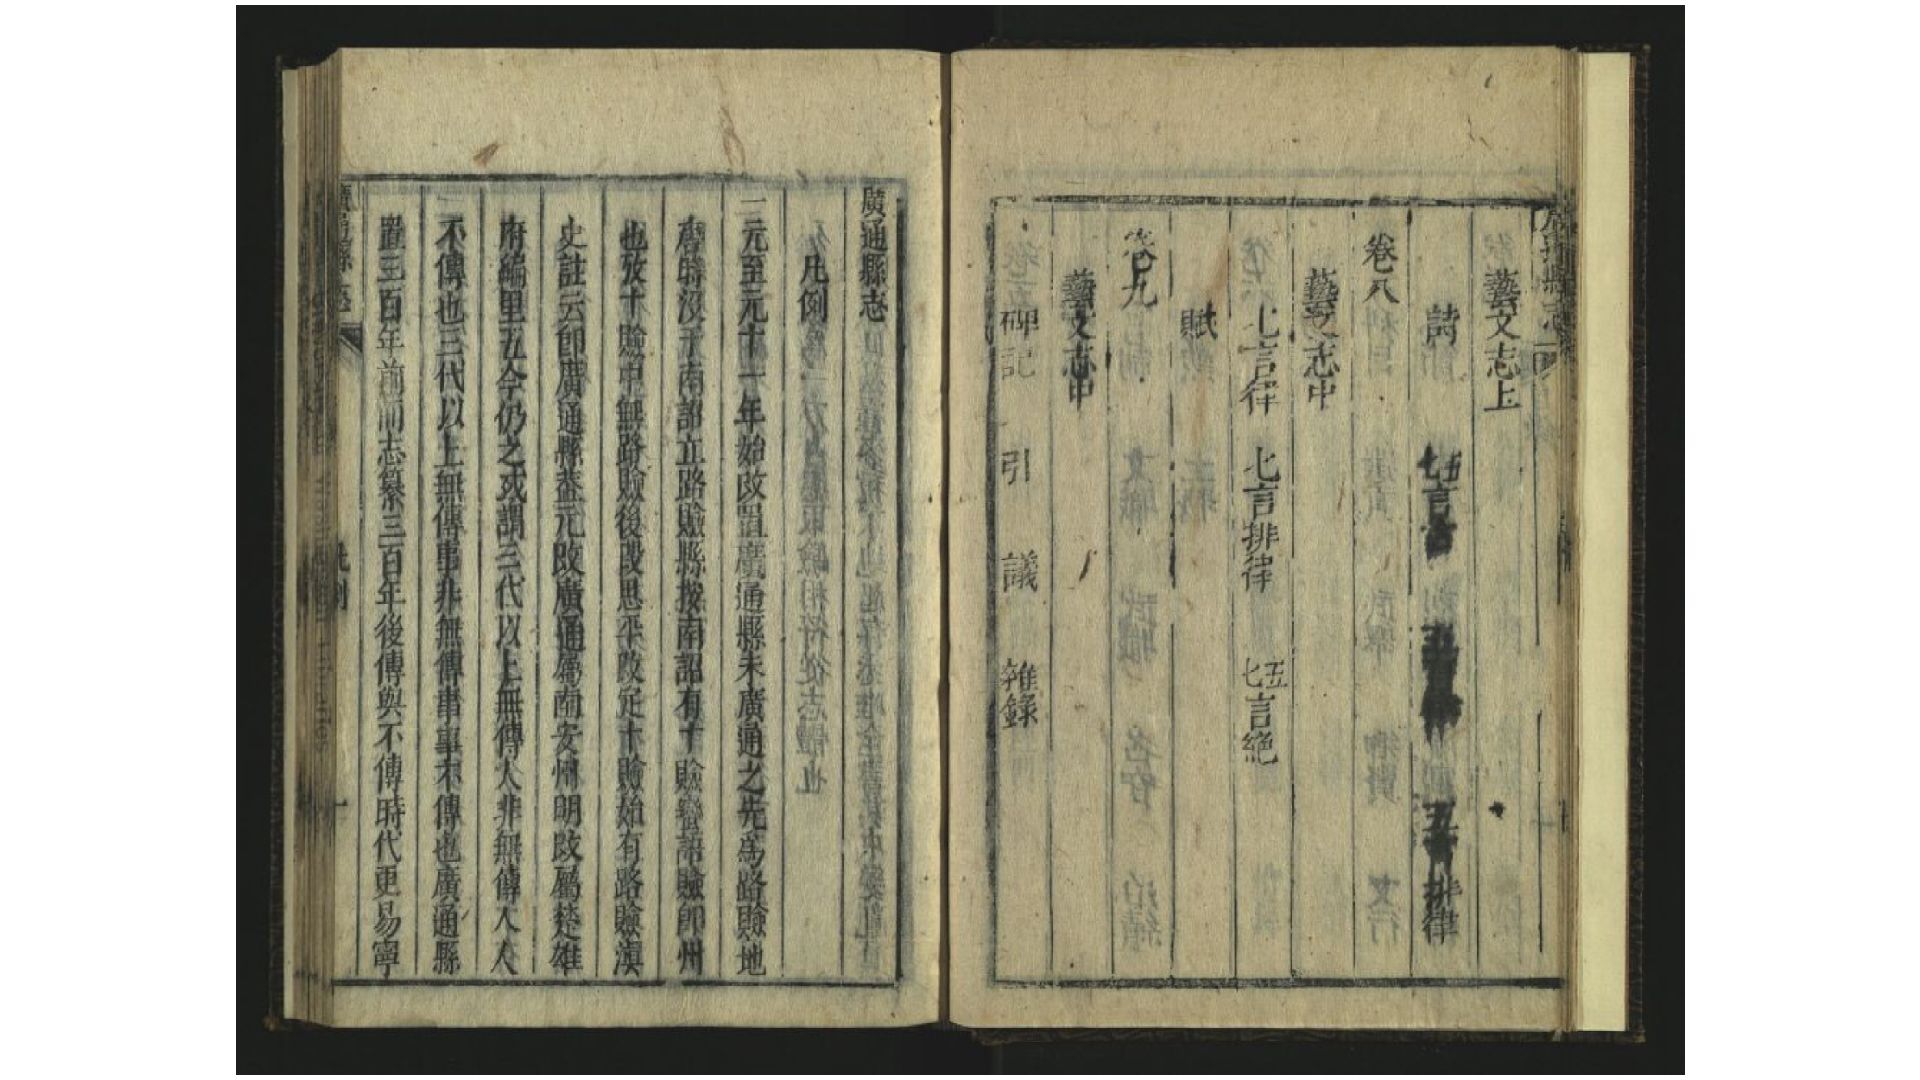 藝文志上
詩 五七言古 排律
卷八
藝文志中
七言律 七言排律 五七言絶
賦
卷九
藝文志中
碑記 引 議 雜錄
廣通縣志
凡例
一元至元十一年始改置廣通縣未廣通之先爲路賧地
唐時沒于南詔立路賧縣按南詔有十賧蠻語賧卽州
也攷十賧中無路賧後段思平改定十賧始有路賧滇
史註云卽廣通縣葢元改廣通屬南安州明改屬楚雄
府編里五今仍之或謂三代以上無傳人非無傳人人
不傳也三代以上無傳事非無傳事事不傳也廣通縣
置三百年前而志纂三百年後傳與不傳時代更易寧